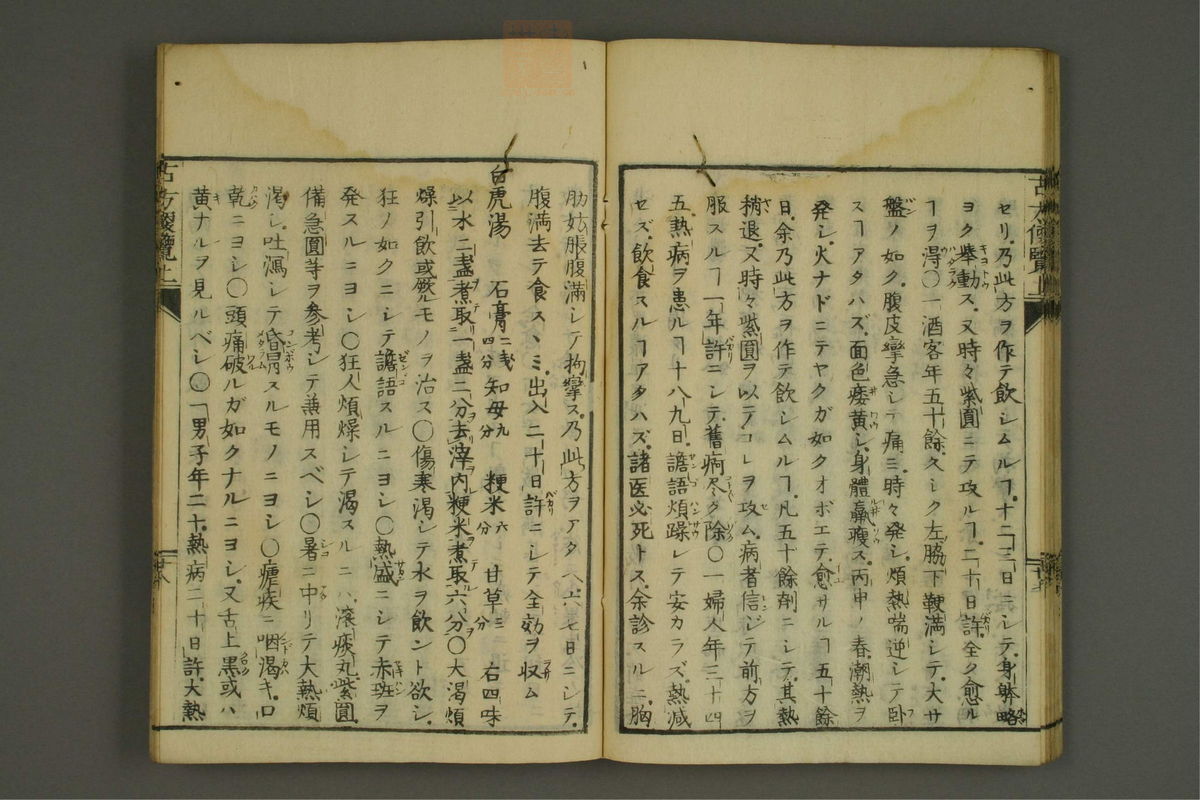 セリ乃此方ヲ作テ飲シムルヿ十二三日ニシテ身躰略
ヨク擧動ス又時々紫圓ニテ攻ルヿ二十日許全ク愈ル
ヿヲ得〇一酒客年五十餘久シク左脇下鞕満シテ大サ
盤ノ如ク腹皮攣急シテ痛ミ時々発シ煩熱喘逆シテ卧
スヿアタハズ面色痿黄シ身體羸瘦ス丙申ノ春潮熱ヲ
発シ火ナドニテヤクガ如クオボエテ愈サルヿ五十餘
日余乃此方ヲ作テ飲シムルヿ凡五十餘劑ニシテ其熱
稍退又時々紫圓ヲ以テコレヲ攻ム病者信ジテ前方ヲ
服スルヿ一年許ニシテ舊痾尽ク除〇一婦人年三十四
五熱病ヲ患ルヿ十八九日譫語煩躁シテ安カラズ熱減
セズ飲食スルヿアタハズ諸医必死トス余診スルニ胸
肋妨脹腹満シテ拘攣ス乃此方ヲアタヘ六七日ニシテ
腹満去テ食スヽミ出入二十日許ニシテ全効ヲ収ム
白虎湯 石膏二戔四分 知母九分 粳米六分 甘草三分 右四味
以水二盞煮取一盞二分去滓内粳米煮取六分〇大渴煩
燥引飲或ハモノヲ治ス〇傷寒渴シテ水ヲ飲ント欲シ
狂ノ如クニシテ譫語スルニヨシ〇熱盛ニシテ赤斑ヲ
発スルニヨシ〇狂人煩燥シテ渴スルニハ滚痰丸紫圓
備急圓等ヲ参考シテ兼用スベシ〇暑ニ中リテ大熱煩
渇シ吐瀉シテ昏冒スルモノニヨシ〇瘧疾ニ咽渴キ口
乾ニヨシ〇頭痛破ルガ如クナルニヨシ又舌上黒或ハ
黄ナルヲ見ルベシ〇一男子年二十熱病二十日許大熱
古方便覧上
古方便覧上